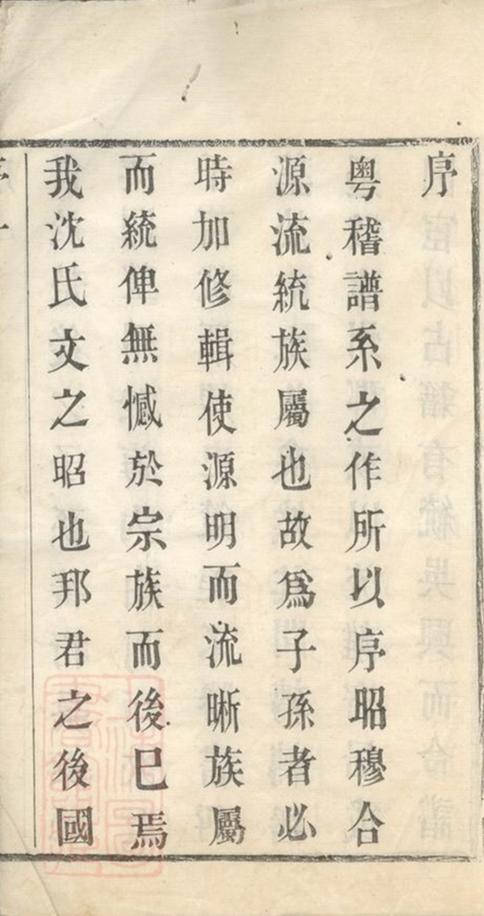 序
粤稽譜系之作所以序昭穆合
源流統族屬也故爲子孫者必
時加修輯使源明而流晰族屬
而統俾無憾於宗族而後已焉
我沈氏文之昭也邦君之後國